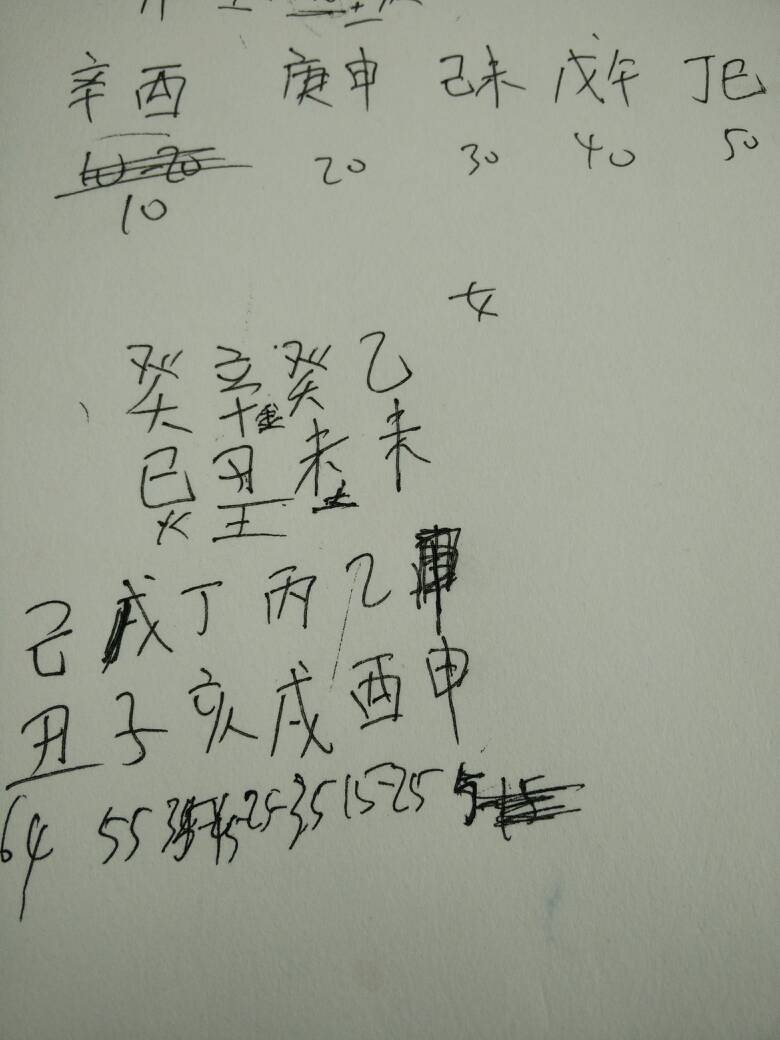 辛酉 庚申 己未 戊午 丁巳
10-20 20 30 40 50
10
女
癸 辛 癸 乙
金
巳 丑 未 未
火 土 土
己 戊 丁 丙 乙
丑 子 亥 戌 酉 申
64 55 25-35 15-25 5-15